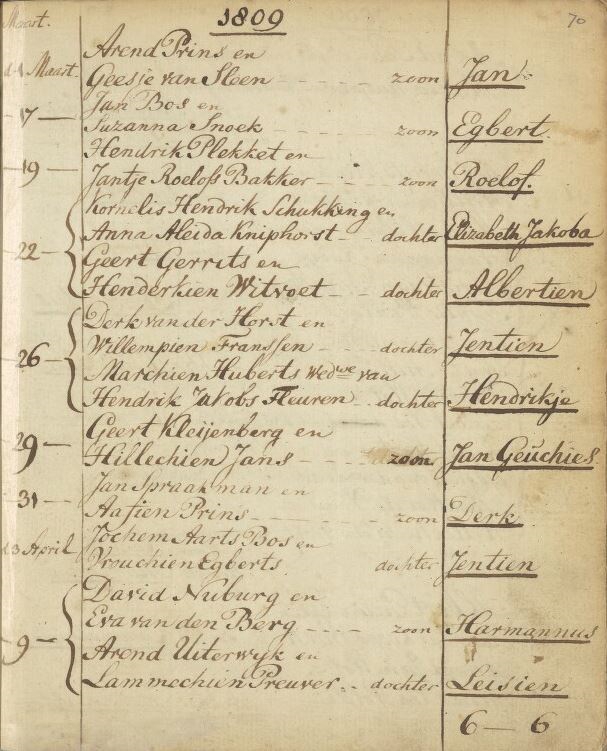 Maart. 1809 70
Arend Prins en
Maart. Geesje van Sleen zoon Jan
Jan Bos en
17 Suzanna Snoek zoon Egbert.
Hendrik Plekket en
19 Jantje Roelofs Bakker zoon Roelof.
Kornelis Hendrik Schukking en
Anna Aleida Kniphorst dochter Elizabeth Jakoba
22 Geert Gerrits en
Henderkien Witvoet dochter Albertien
Derk van der Horst en
Willempien Franssen dochter Jentien
26 Marchien Huberts Wedwe van
Hendrik Jakobs Fleuren dochter Hendrikje
Geert Kleijenberg en
29 Hillechien Jans zoon Jan Geuchies
Jan Spraakman en
31 Aafien Prins zoon Derk
Jochem Aarts Bos en
d 3 April Vrouchien Egberts dochter Jentien
David Nuburg en
Eva van den Berg zoon Harmannus
9 Arend Uiterwyk en
Lammechien Preuver dochter Leisien
6 — 6